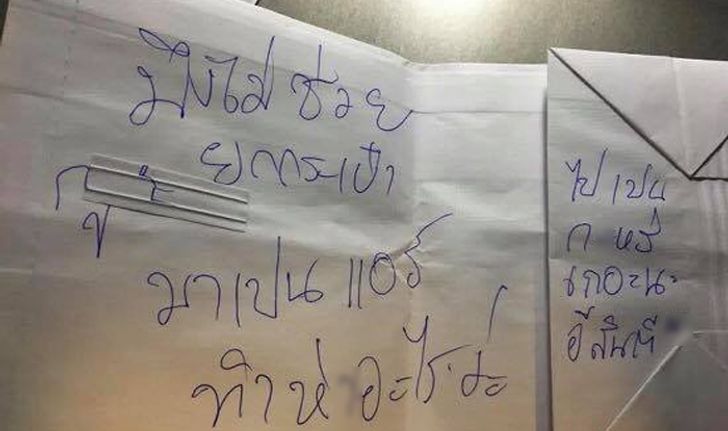 มึงไม่ ช่วย
ยกกระเป๋า
กู
มาเปน แอร์
ทำห่ อะไรว่ะ
ไปเปน
ก หรี่
เถอะนะ